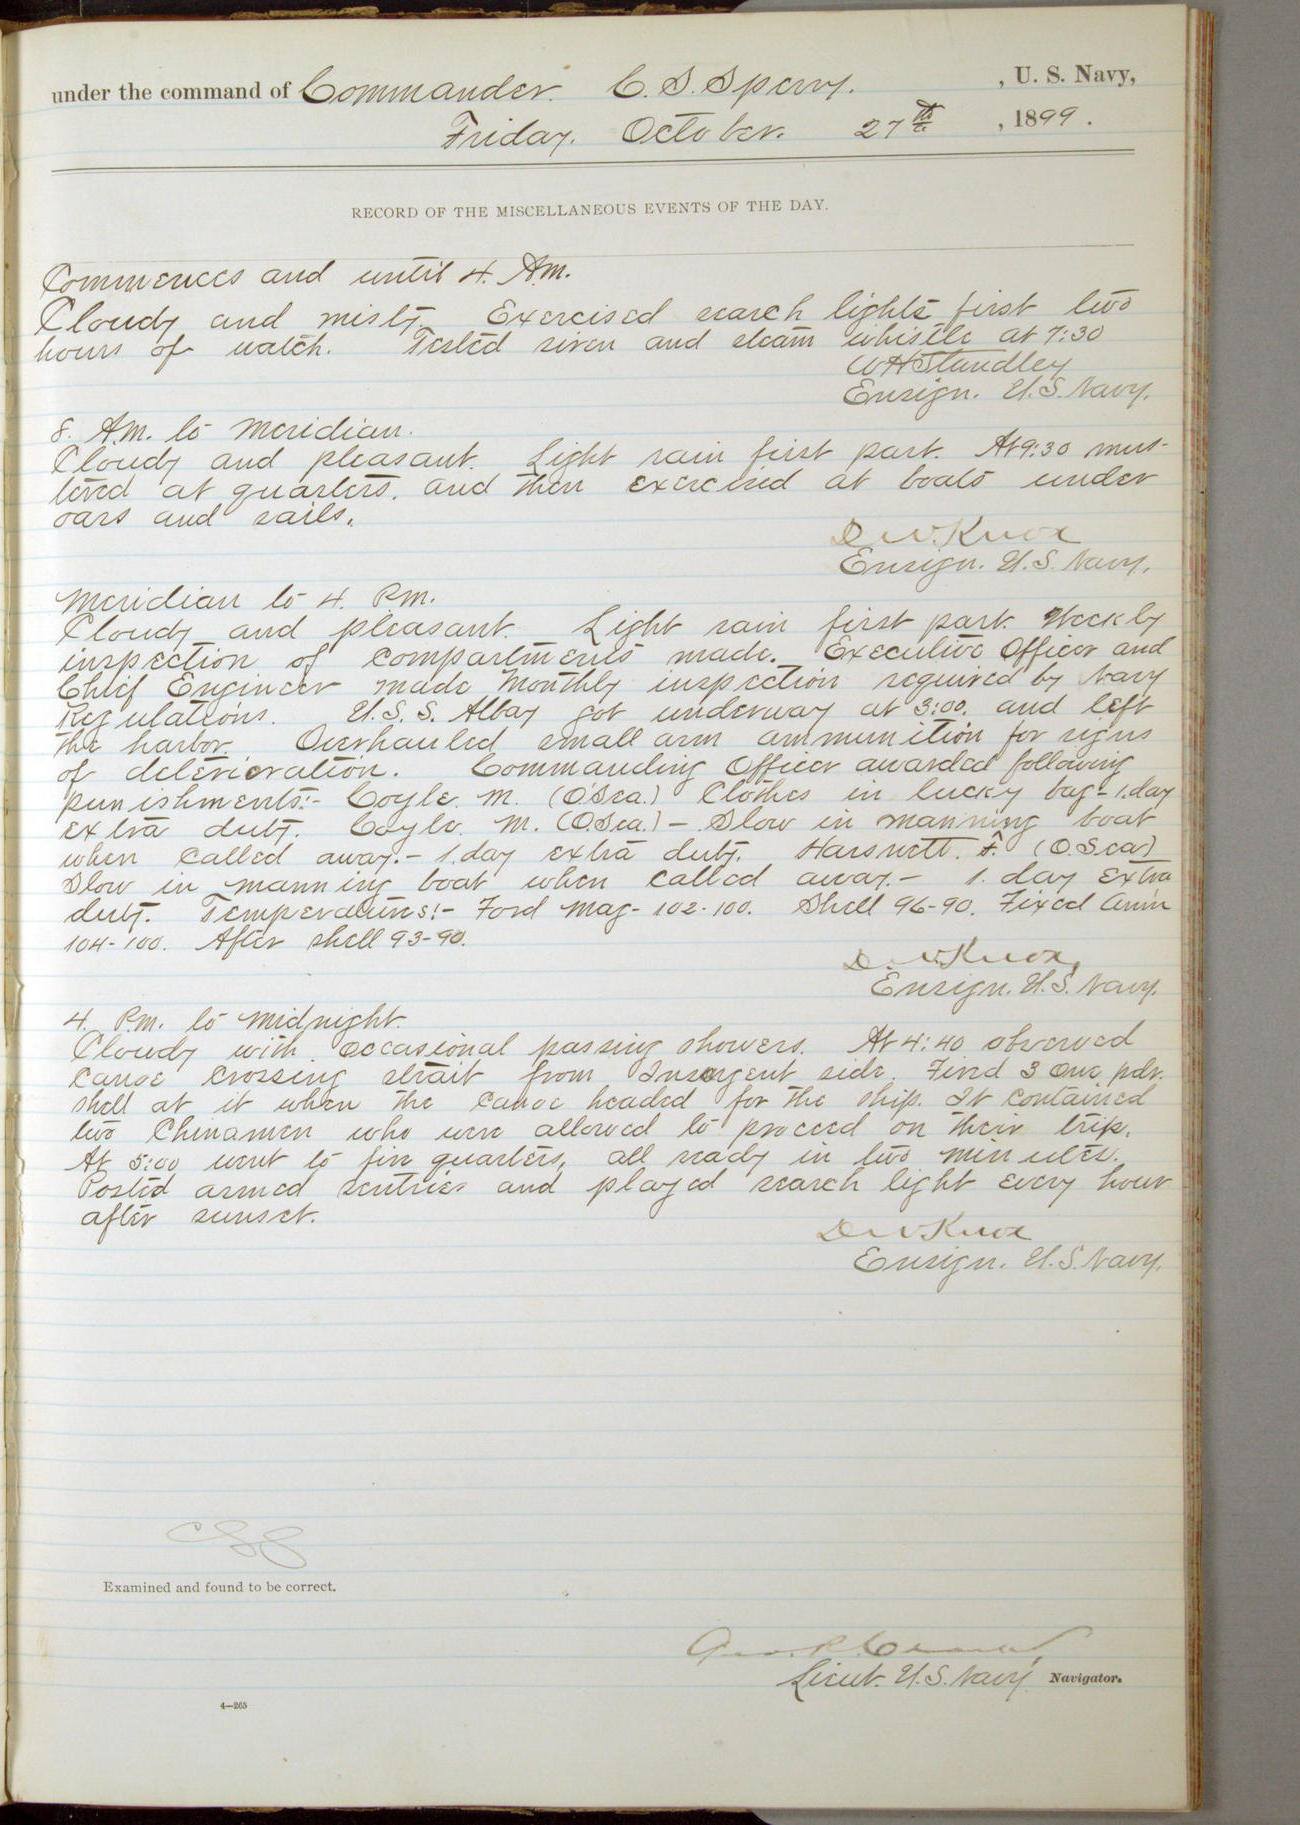 under the command of Commander. C. S. Sperry. , U. S. Navy,
Friday. October. 27th , 1899.
RECORD OF THE MISCELLANEOUS EVENTS OF THE DAY.
Commences and until 4. A.m.
Cloudy and misty. Exercised search lights first two
hours of watch. Tested siren and steam whistle at 7:30
W H Standley
Ensign. U.S. Navy.
8. A.m. to meridian.
Cloudy and pleasant. Light rain first part. At 9:30 mus-
tered at quarters, and then exercised at boats under
oars and sails.
D W. Knox
Ensign. U.S. Navy.
Meridian to 4. P.m.
Cloudy and pleasant. Light rain first part. Weekly
inspection of compartments made. Executive Officer and
Chief Engineer made Monthly inspection required by Navy
Regulations. U.S.S. Albay got underway at 3:00. and left
the harbor. Overhauled small arm ammunition for signs
of deterioration. Commanding Officer awarded following
punishments:- Coyle. M. (O'Sea.) Clothes in lucky bag - 1.day
extra duty. Coyle. M. (O.Sea.) - Slow in manning boat
when called away. - 1.day extra duty. Harsnett. F. (O.Sea)
Slow in manning boat when called away. - 1. day extra
duty. Temperatures:- Ford Mag- 102-100. Shell 96-90. Fixed Amm
104-100. After shell 93-90.
D. W. Knox,
Ensign. U.S. Navy.
4. P.m. to midnight.
Cloudy with occasional passing showers. At 4:40 observed
canoe crossing strait from Insurgent side. Fired 3 One pdr.
shell at it when the canoe headed for the ship. It contained
two Chinamen who were allowed to proceed on their trip.
At 5:00 went to fire quarters, all ready in two minutes.
Posted armed sentries and played search light every hour
after sunset.
D W Knox
Ensign. U.S. Navy.
CSS
Examined and found to be correct.
Lieut. U.S. Navy Navigator.
4—265